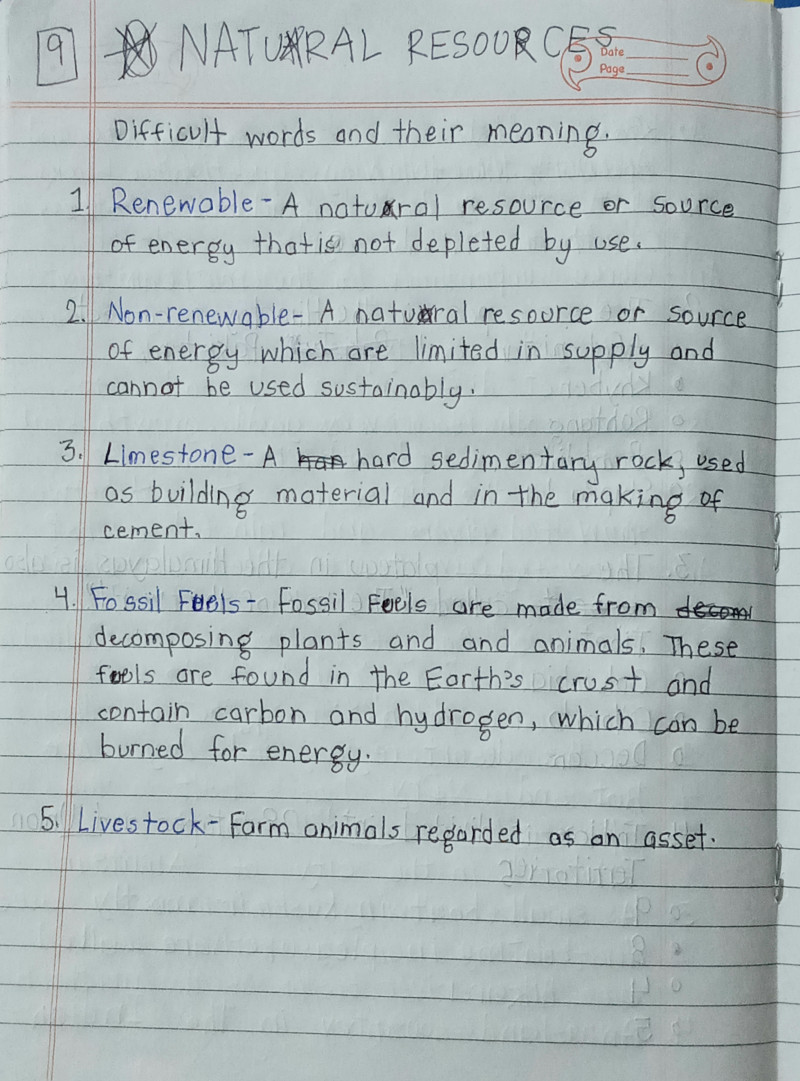 9 NATURAL RESOURCES
Date
Page
Difficult words and their meaning.
1. Renewable - A natural resource or source
of energy that is not depleted by use.
2. Non-renewable - A natural resource or source
of energy which are limited in supply and
cannot be used sustainably.
3. Limestone - A hard sedimentary rock, used
as building material and in the making of
cement.
4. Fossil Fuels - Fossil Fuels are made from
decomposing plants and and animals. These
fuels are found in the Earth's crust and
contain carbon and hydrogen, which can be
burned for energy.
5. Livestock - Farm animals regarded as an asset.